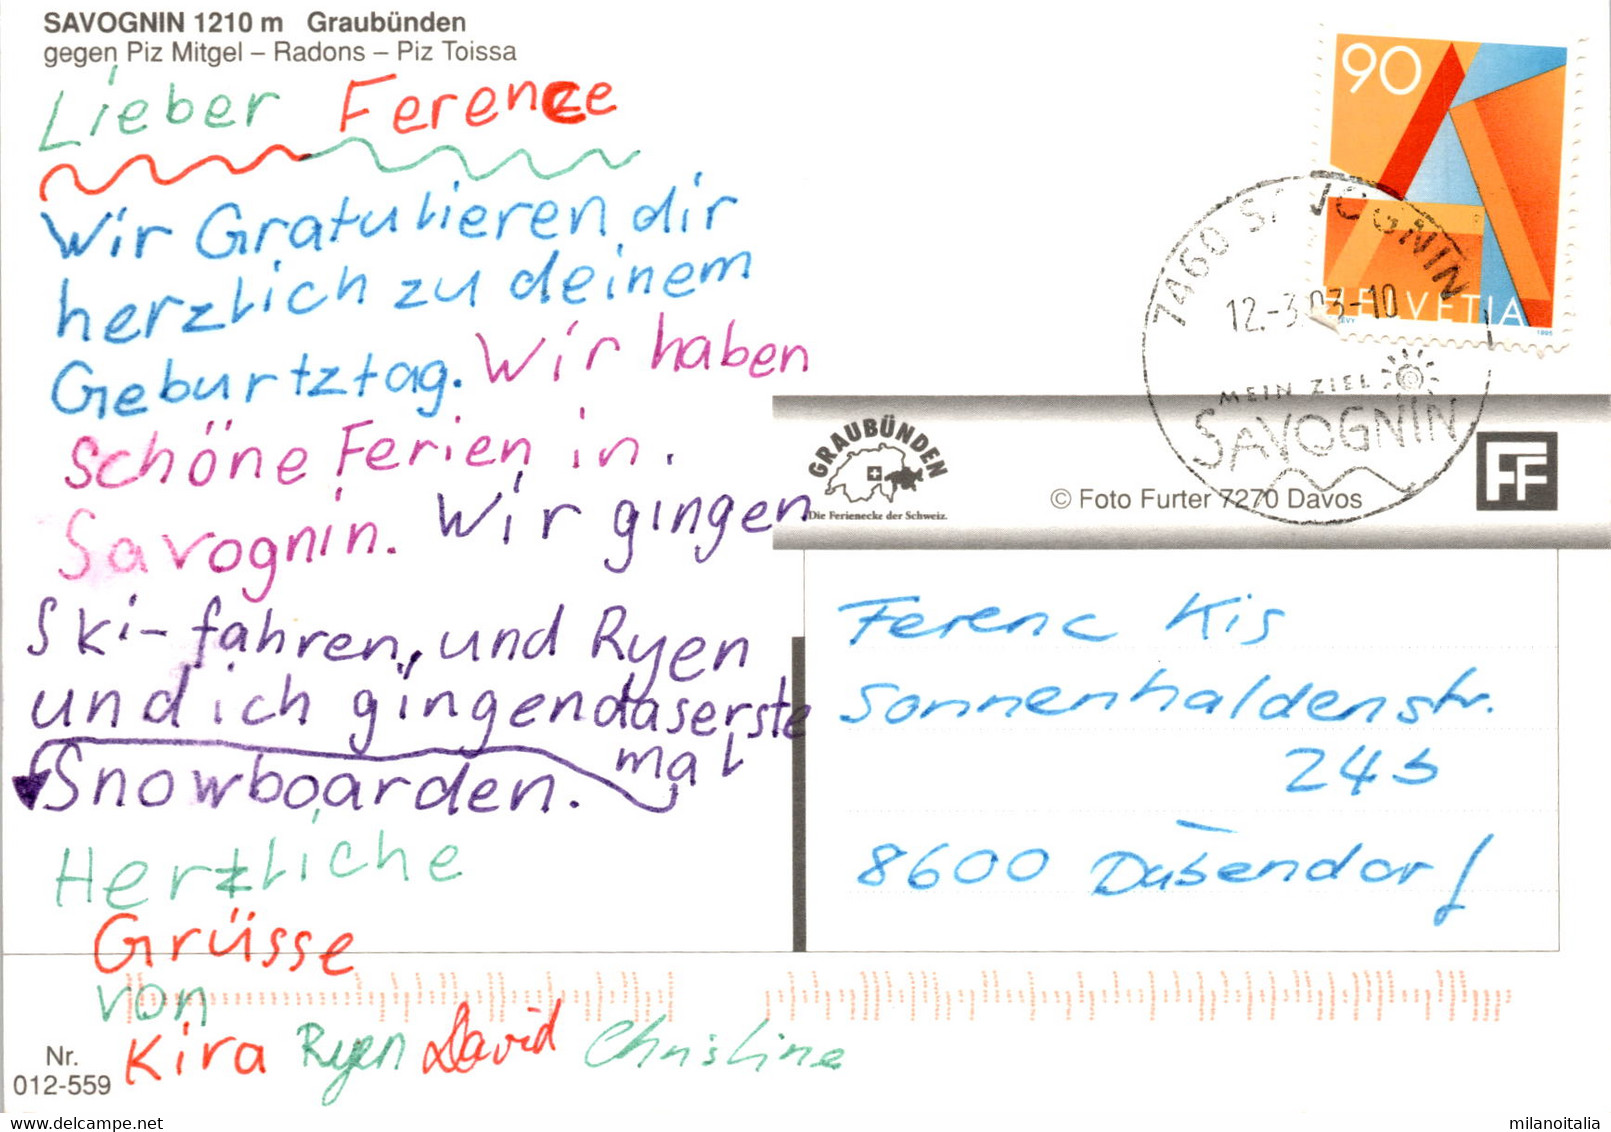 SAVOGNIN 1210 m Graubünden
gegen Piz Mitgel – Radons – Piz Toissa
Lieber Ference
Wir Gratulieren dir
herzlich zu deinem
Geburtztag. Wir haben
schöne Ferien in.
Savognin. Wir gingen
Ski-fahren, und Ryen
und ich gingen daserste
mal
Snowboarden.
Herzliche
Grüsse
von
Kira Ryen David Christine
Nr.
012-559
90
HELVETIA
1995
7460 SAVOGNIN
12.-3.03-10
MEIN ZIEL
SAVOGNIN
GRAUBÜNDEN
Die Ferienecke der Schweiz.
© Foto Furter 7270 Davos
FF
Ferenc Kis
Sonnenhaldenstr.
24b
8600 Dübendorf
milanoitalia